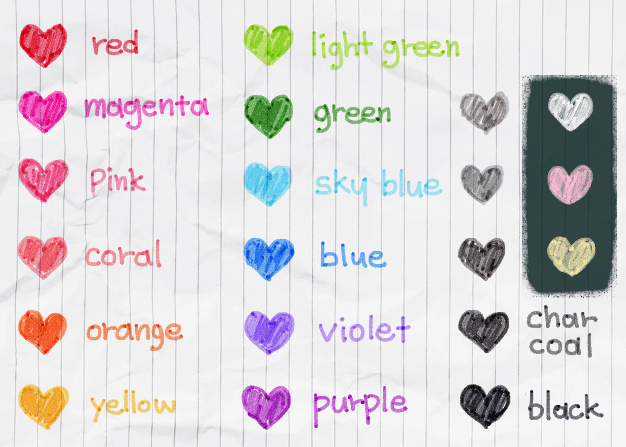 red
magenta
Pink
coral
orange
yellow
light green
green
sky blue
blue
violet
purple
char
coal
black